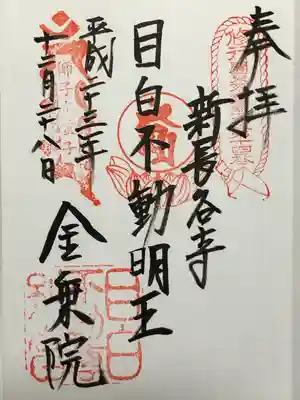 奉拝
新長谷寺
目白不動明王
平成二十三年
十二月二十八日
金乗院